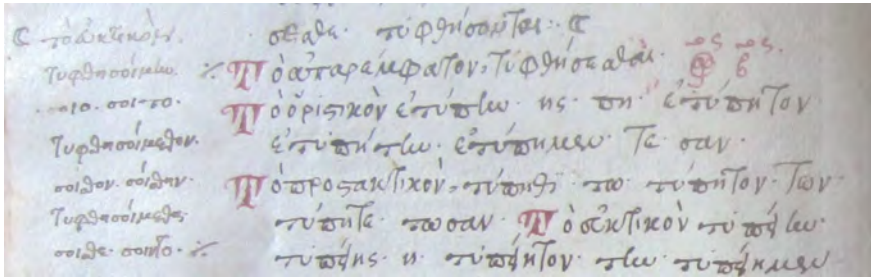 τὸ εὐκτικὸν.
τυφθησοίμην
σοιο· σοιτο·
τυφθησοίμεθον·
σοισθον· σοίσθην·
τυφθησοίμεθα·
σοισθε· σοιντο·
σεσθε· τυφθήσονται:
Τὸ ἀπαρέμφατον, τυφθήσεσθαι· β ος
Τὸ ὁριστικὸν ἐτύπην· ης· πη· ἐτύπητον
ἐτυπήτην· ἐτύπημεν· τε σαν·
Τὸ προστακτικὸν, τύπηθι· τω· τύπητον· των·
τύπητε· τωσαν· Τὸ εὐκτικὸν τυπείην·
τυπείης· η· τυπείητον· την· τυπείημεν